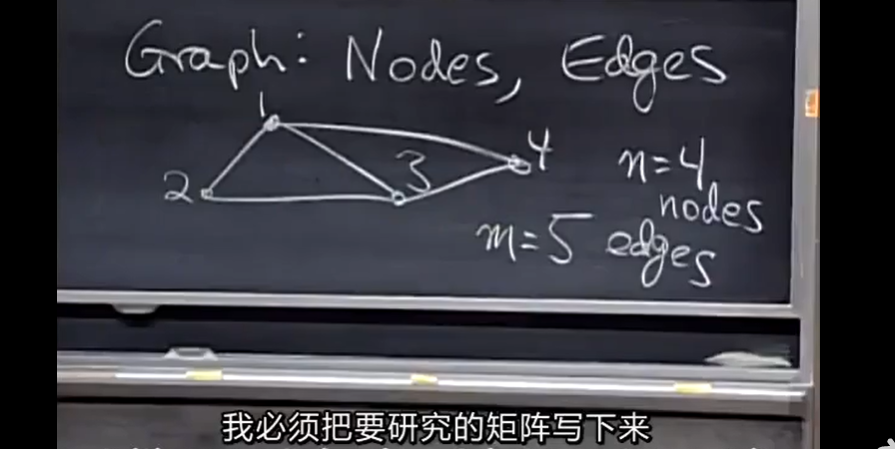 Graph: Nodes, Edges
1
2
3
4
n=4
nodes
m=5 edges
我必须把要研究的矩阵写下来